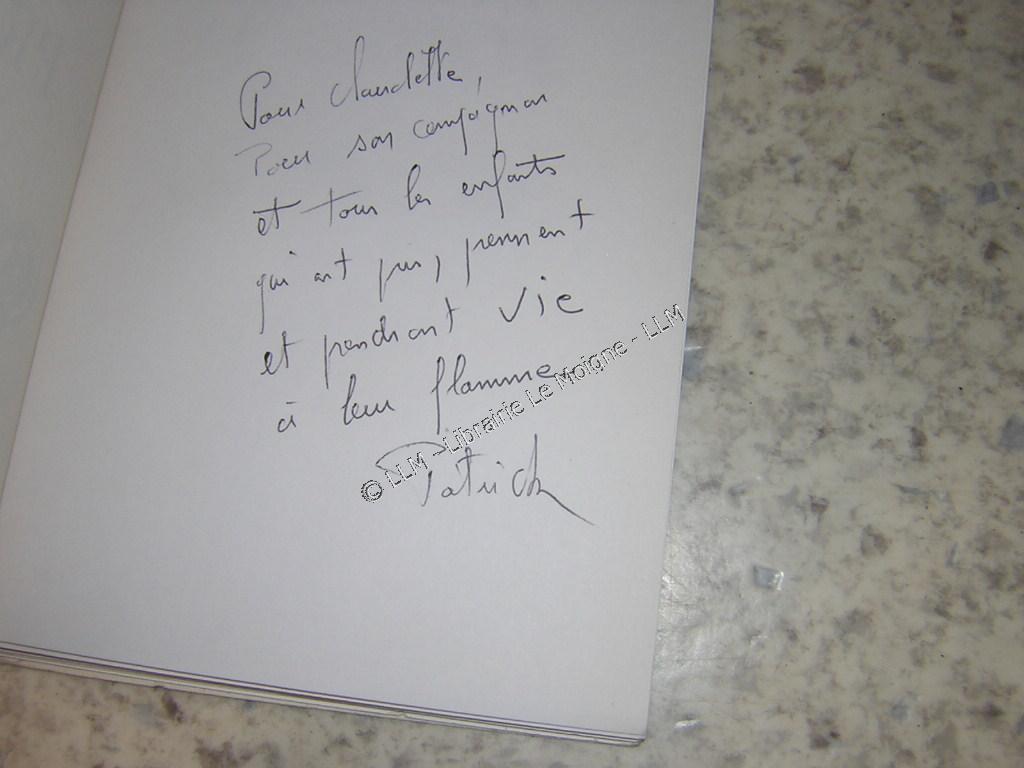 Pour Claudette,
Pour son compagnon
et tous les enfants
qui ont pris, prennent
et prendront vie
à leur flamme...
Patrick
© LLM - Librairie Le Moigne - LLM